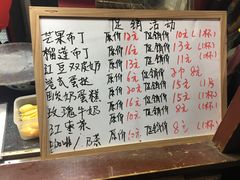 促销活动
芒果布丁 原价12元 促销价10元(1杯)
榴莲布丁 原价15元 促销价13元(1杯)
红豆双皮奶 原价13元 促销价11元(1杯)
港式蛋挞 原价 促销价
酸奶蛋糕 原价20元 促销价15元
玫瑰牛奶 原价16元 促销价15元(1杯)
红枣茶 原价10元 促销价8元(1杯)
原价10元 促销价8元(1杯)